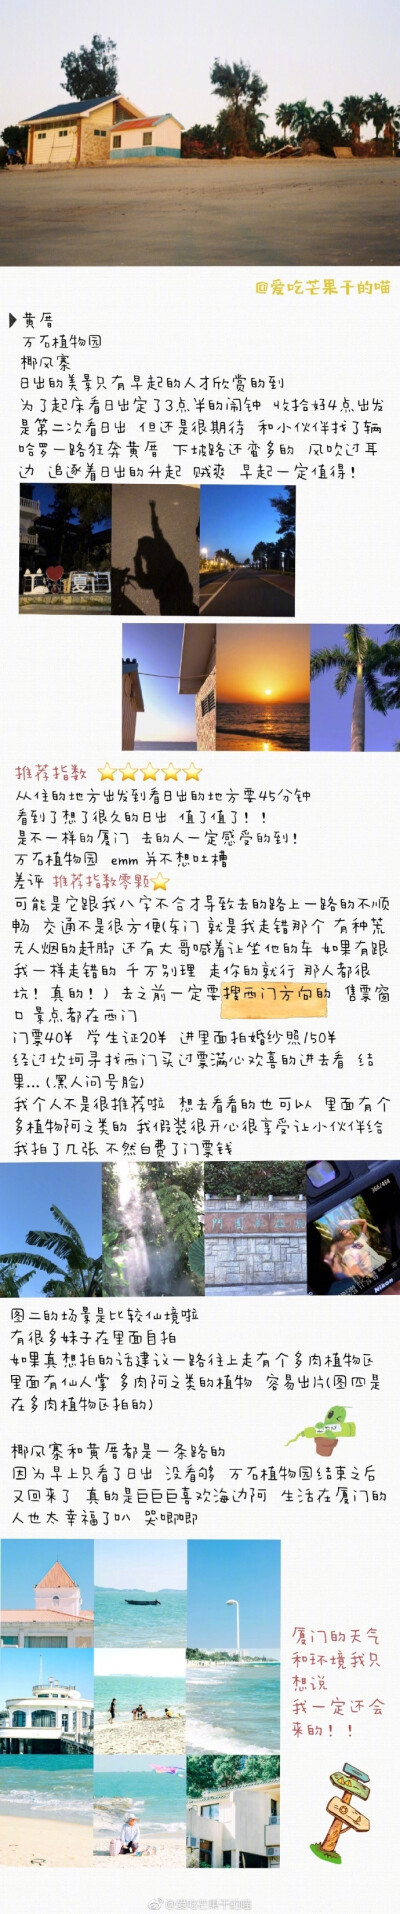 @爱吃芒果干的喵
黄厝
万石植物园
椰风寨
日出的美景只有早起的人才欣赏的到
为了起床看日出定了3点半的闹钟 收拾好4点出发
是第二次看日出 但还是很期待 和小伙伴找了辆
哈罗一路狂奔黄厝 下坡路还蛮多的 风吹过耳
边 追逐着日出的升起 贼爽 早起一定值得！
推荐指数
从住的地方出发到看日出的地方要45分钟
看到了想了很久的日出 值了值了！！
是不一样的厦门 去的人一定感受的到！
万石植物园 emm 并不想吐槽
差评 推荐指数零颗
可能是它跟我八字不合才导致去的路上一路的不顺
畅 交通不是很方便(东门 就是我走错那个 有种荒
无人烟的赶脚 还有大哥喊着让坐他的车 如果有跟
我一样走错的 千万别理 走你的就行 那人都很
坑！真的！) 去之前一定要搜西门方向的 售票窗
口 景点都在西门
门票40¥ 学生证20¥ 进里面拍婚纱照150¥
经过坎坷寻找西门买过票满心欢喜的进去看 结
果... (黑人问号脸)
我个人不是很推荐啦 想去看看的也可以 里面有个
多植物阿之类的 我假装很开心很享受让小伙伴给
我拍了几张 不然白费了门票钱
Nikon
图二的场景是比较仙境啦
有很多妹子在里面自拍
如果真想拍的话建议一路往上走有个多肉植物区
里面有仙人掌 多肉阿之类的植物 容易出片(图四是
在多肉植物区拍的)
椰风寨和黄厝都是一条路的
因为早上只看了日出 没看够 万石植物园结束之后
又回来了 真的是巨巨巨喜欢海边阿 生活在厦门的
人也太幸福了叭 哭唧唧
厦门的天气
和环境我只
想说
我一定还会
来的！！
@爱吃芒果干的喵